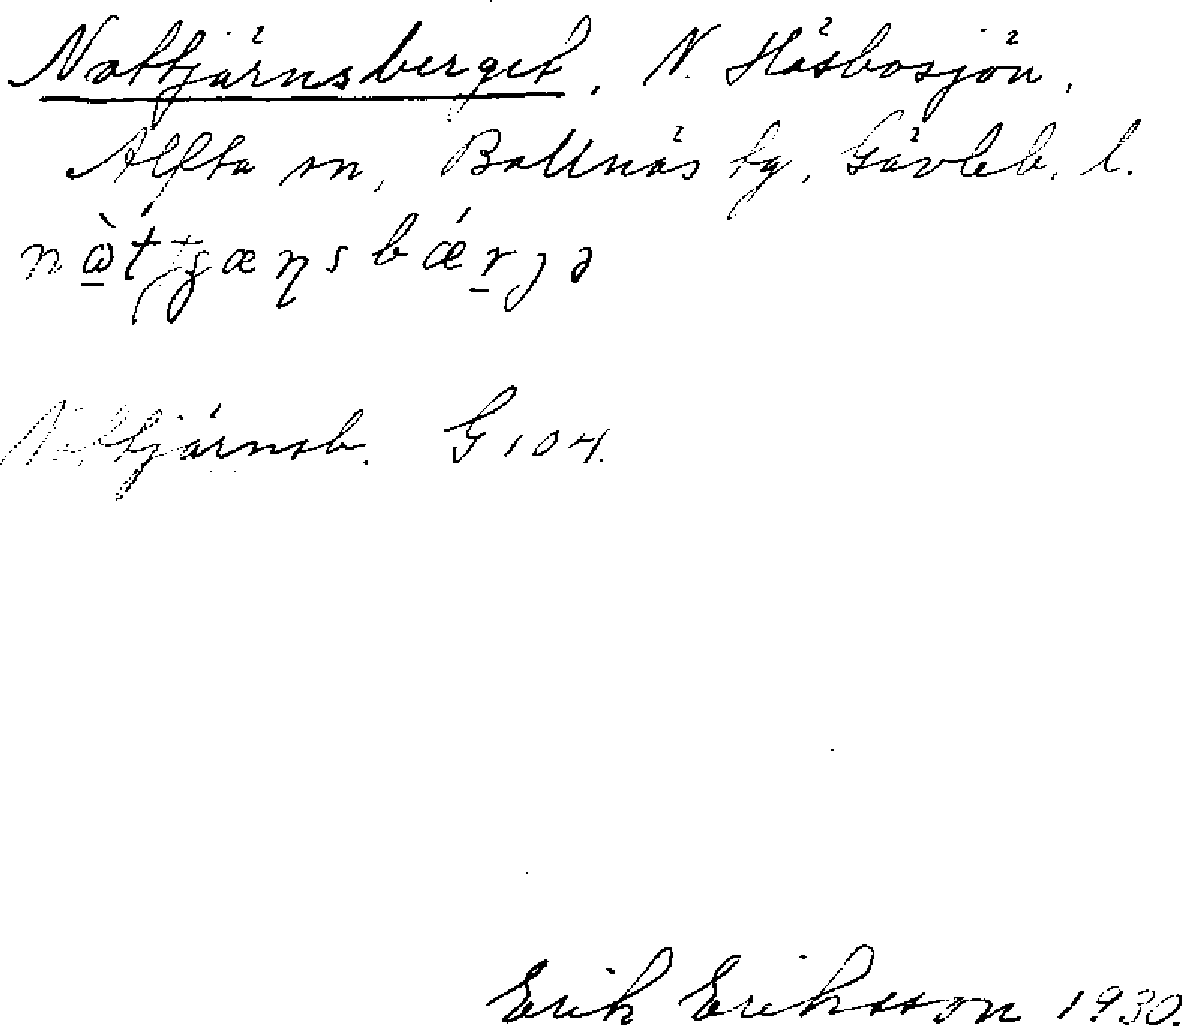 Nattjärnsberget, N. Häsbosjön,
Alfta sn, Bollnäs tg, Gävleb. l.
Nattjärnsb. G 104.
Erik Eriksson 1930.